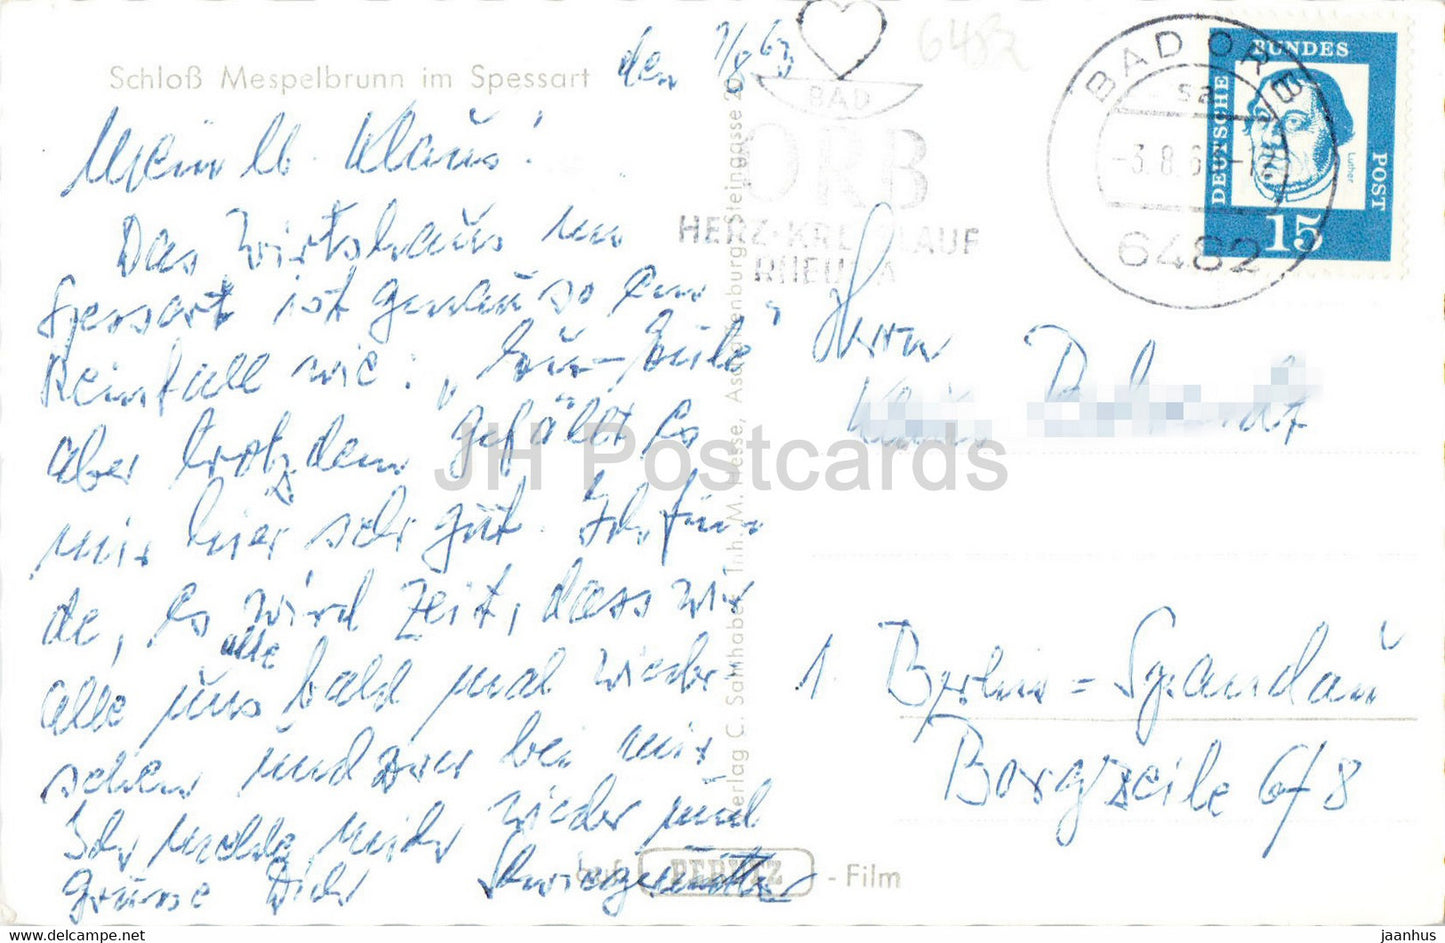 Schloß Mespelbrunn im Spessart
den 1/8 63
Mein lb. Klaus!
Das Wirtshaus im
Spessart ist genau so ein
Reinfall wie:
aber trotzdem gefällt es
mir hier sehr gut. Ich fin-
de, es wird Zeit, dass wir
alle
alle uns bald mal wieder
sehen und zwar bei mir
Ich melde mich wieder und
grüsse Dich Schwiegermutter
Verlag C. Samhaber, Inh. M. Hesse, Aschaffenburg, Steingasse 20
auf PERUTZ - Film
6482
BAD
ORB
HERZ-KREISLAUF
RHEUMA
BAD ORB
sa
-3.8.63
6482
DEUTSCHE BUNDES POST
Luther
15
Herrn
Klaus
1. Berlin=Spandau
Borgzeile 6/8
JH Postcards
www.hippostcard.com/store/jaanhus
jaanhus